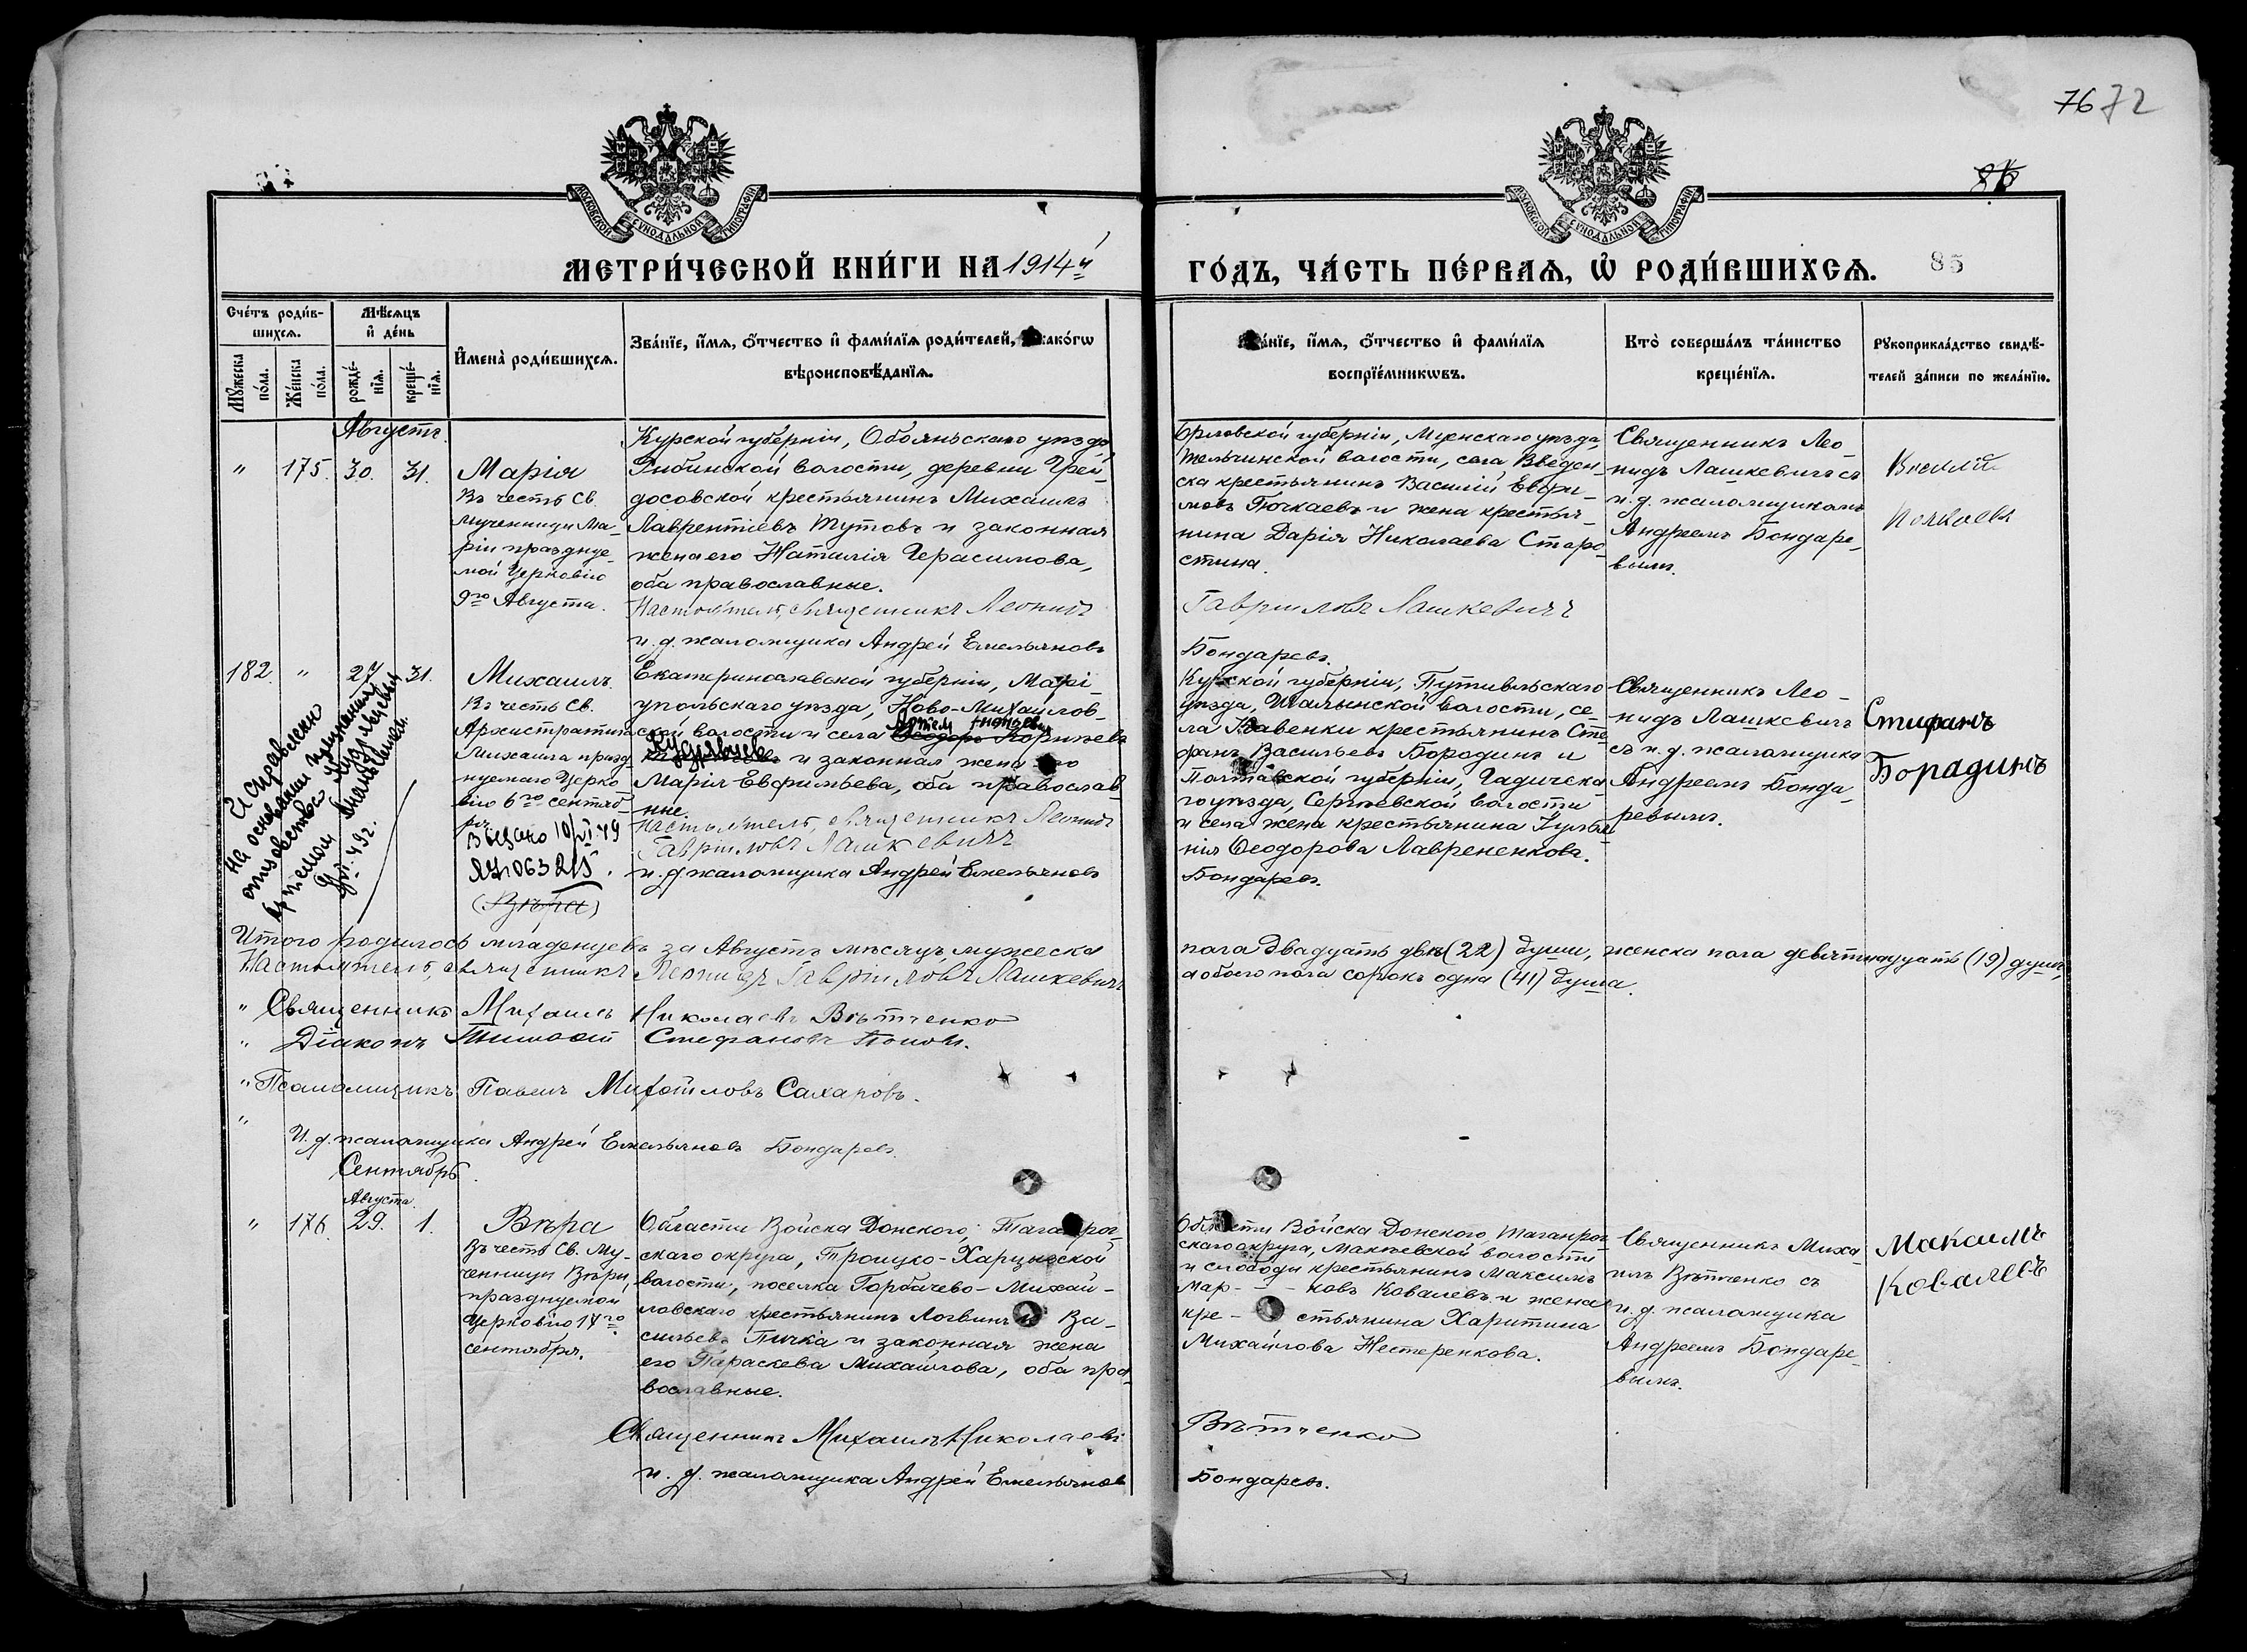 7672
85
МОСКОВСКОЙ СѴНОДАЛЬНОЙ ТИПОГРАФІИ
МОСКОВСКОЙ СѴНОДАЛЬНОЙ ТИПОГРАФІИ
МЕТРИ́ЧЕСКОЙ КНИ́ГИ НА 1914й
ГО́ДЪ, ЧА́СТЬ ПЕ́РВАѦ, Ѽ РОДИ́ВШИХСѦ.
Сче́тъ роди́в-
шихсѧ.
Мꙋжеска по́ла.
Же́нска по́ла.
Мѣ́сѧцъ
и҆ де́нь
рожде́-
нїѧ.
креще́-
нїѧ.
И҆мена̀ роди́вшихсѧ.
Зва́нїе, и҆́мѧ, ѻ҆́тчество и҆ фами́лїѧ роди́телей, како́гѡ
вѣроисповѣ́данїѧ.
а́нїе, и҆́мѧ, ѻ҆́тчество и҆ фами́лїѧ
воспрїе́мникѡвъ.
Кто̀ соверша́лъ та́инство
креще́нїѧ.
Рꙋкоприкла́дство свидѣ́-
телей за́писи по жела́нїю.
Августъ.
" 175. 30. 31.
Марія
Въ честь Св.
мученицы Ма-
ріи празднуе-
мой Церковію
9го Августа.
Курской губерніи, Обоянскаго уѣзда,
волости, деревни
крестьянинъ Михаилъ
Лаврентіевъ Тутовъ и законная
жена его Наталія Герасимова,
оба православные.
Настоятель, священникъ Леонидъ
и. д. псаломщика Андрей Емельяновъ
Орловской губерніи, Мценскаго уѣзда,
волости, села Введен-
ска крестьянинъ Василій Ефи-
мовъ и жена крестья-
нина Дарія Николаева Старо-
стина.
Гавріиловъ Лашкевичъ
Бондаревъ.
Священникъ Лео-
нидъ Лашкевичъ съ
и. д. псаломщикомъ
Андреемъ Бондаре-
вымъ.
182. " 27 31.
Михаилъ.
Въ честь Св.
Архистратига
Михаила празд-
нуемаго Церко-
вію 6го сентяб-
ря.
10/VI 49
(Вѣра)
Исправлено
на основании
Екатеринославской губерніи, Марі-
упольскаго уѣзда, Ново-Михайлов-
ской волости и села
и законная жена его
Марія Евфимьева, оба православ-
ные.
Настоятель, священникъ Леонидъ
Гавріиловъ Лашкевичъ
и. д. псаломщика Андрей Емельяновъ
Курской губерніи, Путивльскаго
уѣзда, волости, се-
ла крестьянинъ Сте-
фанъ Васильевъ Бородинъ и
Полтавской губерніи, Гадячска-
го уѣзда, Сергѣевской волости
и села жена крестьянина
Ѳеодорова Лаврененкова.
Бондаревъ.
Священникъ Лео-
нидъ Лашкевичъ
съ и. д. псаломщика
Андреемъ Бонда-
ревымъ.
Стифанъ
Борадинъ
Итого родилось младенцевъ за Августъ мѣсяцъ мужеска пола двадцать двѣ (22) души, женска пола девятнадцать (19) душъ,
а обоего пола сорокъ одна (41) душа.
Настоятель, священникъ Леонидъ Гавріиловъ Лашкевичъ
" Священникъ Михаилъ Николаевъ Вѣтченко
" Діаконъ Тимоѳей Стефановъ Поповъ.
" Псаломщикъ Павелъ Михаиловъ Сахаровъ.
" И. д. псаломщика Андрей Емельяновъ Бондаревъ.
Сентябрь.
Августа.
" 176. 29. 1.
Вѣра
Въ честь Св. Му-
ченицы Вѣры,
празднуемой
Церковію 17го
сентября.
Области Войска Донского, Таганрог-
скаго округа, Троицко-Харцызской
волости, поселка Горбачево-Михай-
ловскаго крестьянинъ Логвинъ Ва-
сильевъ Пичка и законная жена
его Параскева Михайлова, оба пра-
вославные.
Священникъ Михаилъ Николаевъ
и. д. псаломщика Андрей Емельяновъ
Области Войска Донского, Таганрог-
скаго округа, Макѣевской волости
и слободы крестьянинъ Максимъ
Мар- - - ковъ Ковалевъ и жена
кре- стьянина Харитина
Михайлова Нестеренкова.
Вѣтченко
Бондаревъ.
Священникъ Миха-
илъ Вѣтченко съ
и. д. псаломщика
Андреемъ Бондаре-
вымъ.
Макаимъ
Ковалевъ